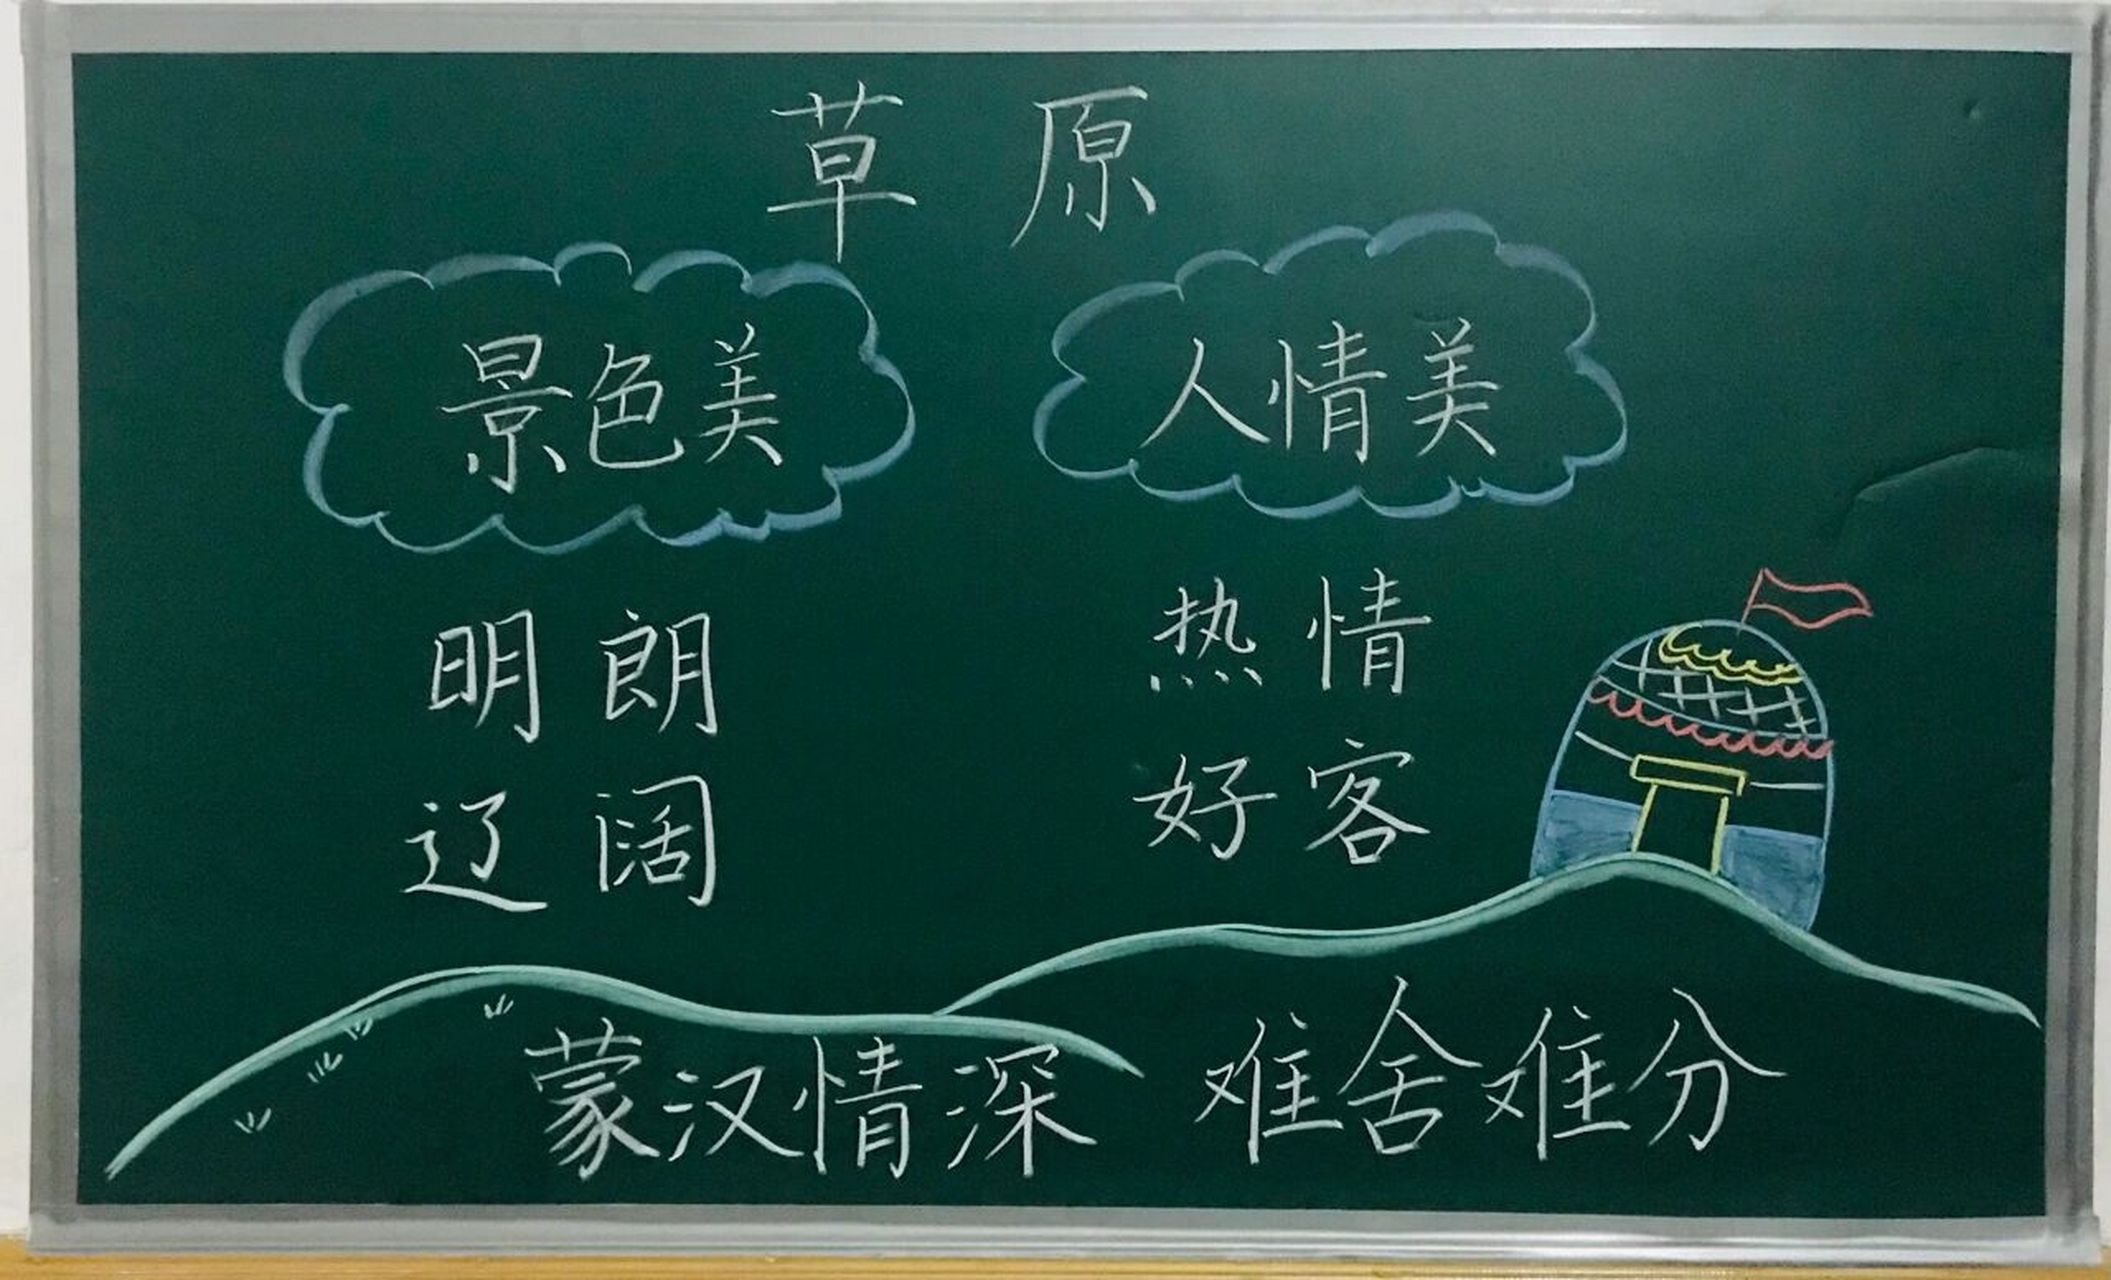 草原
景色美
人情美
明朗
热情
辽阔
好客
蒙汉情深 难舍难分